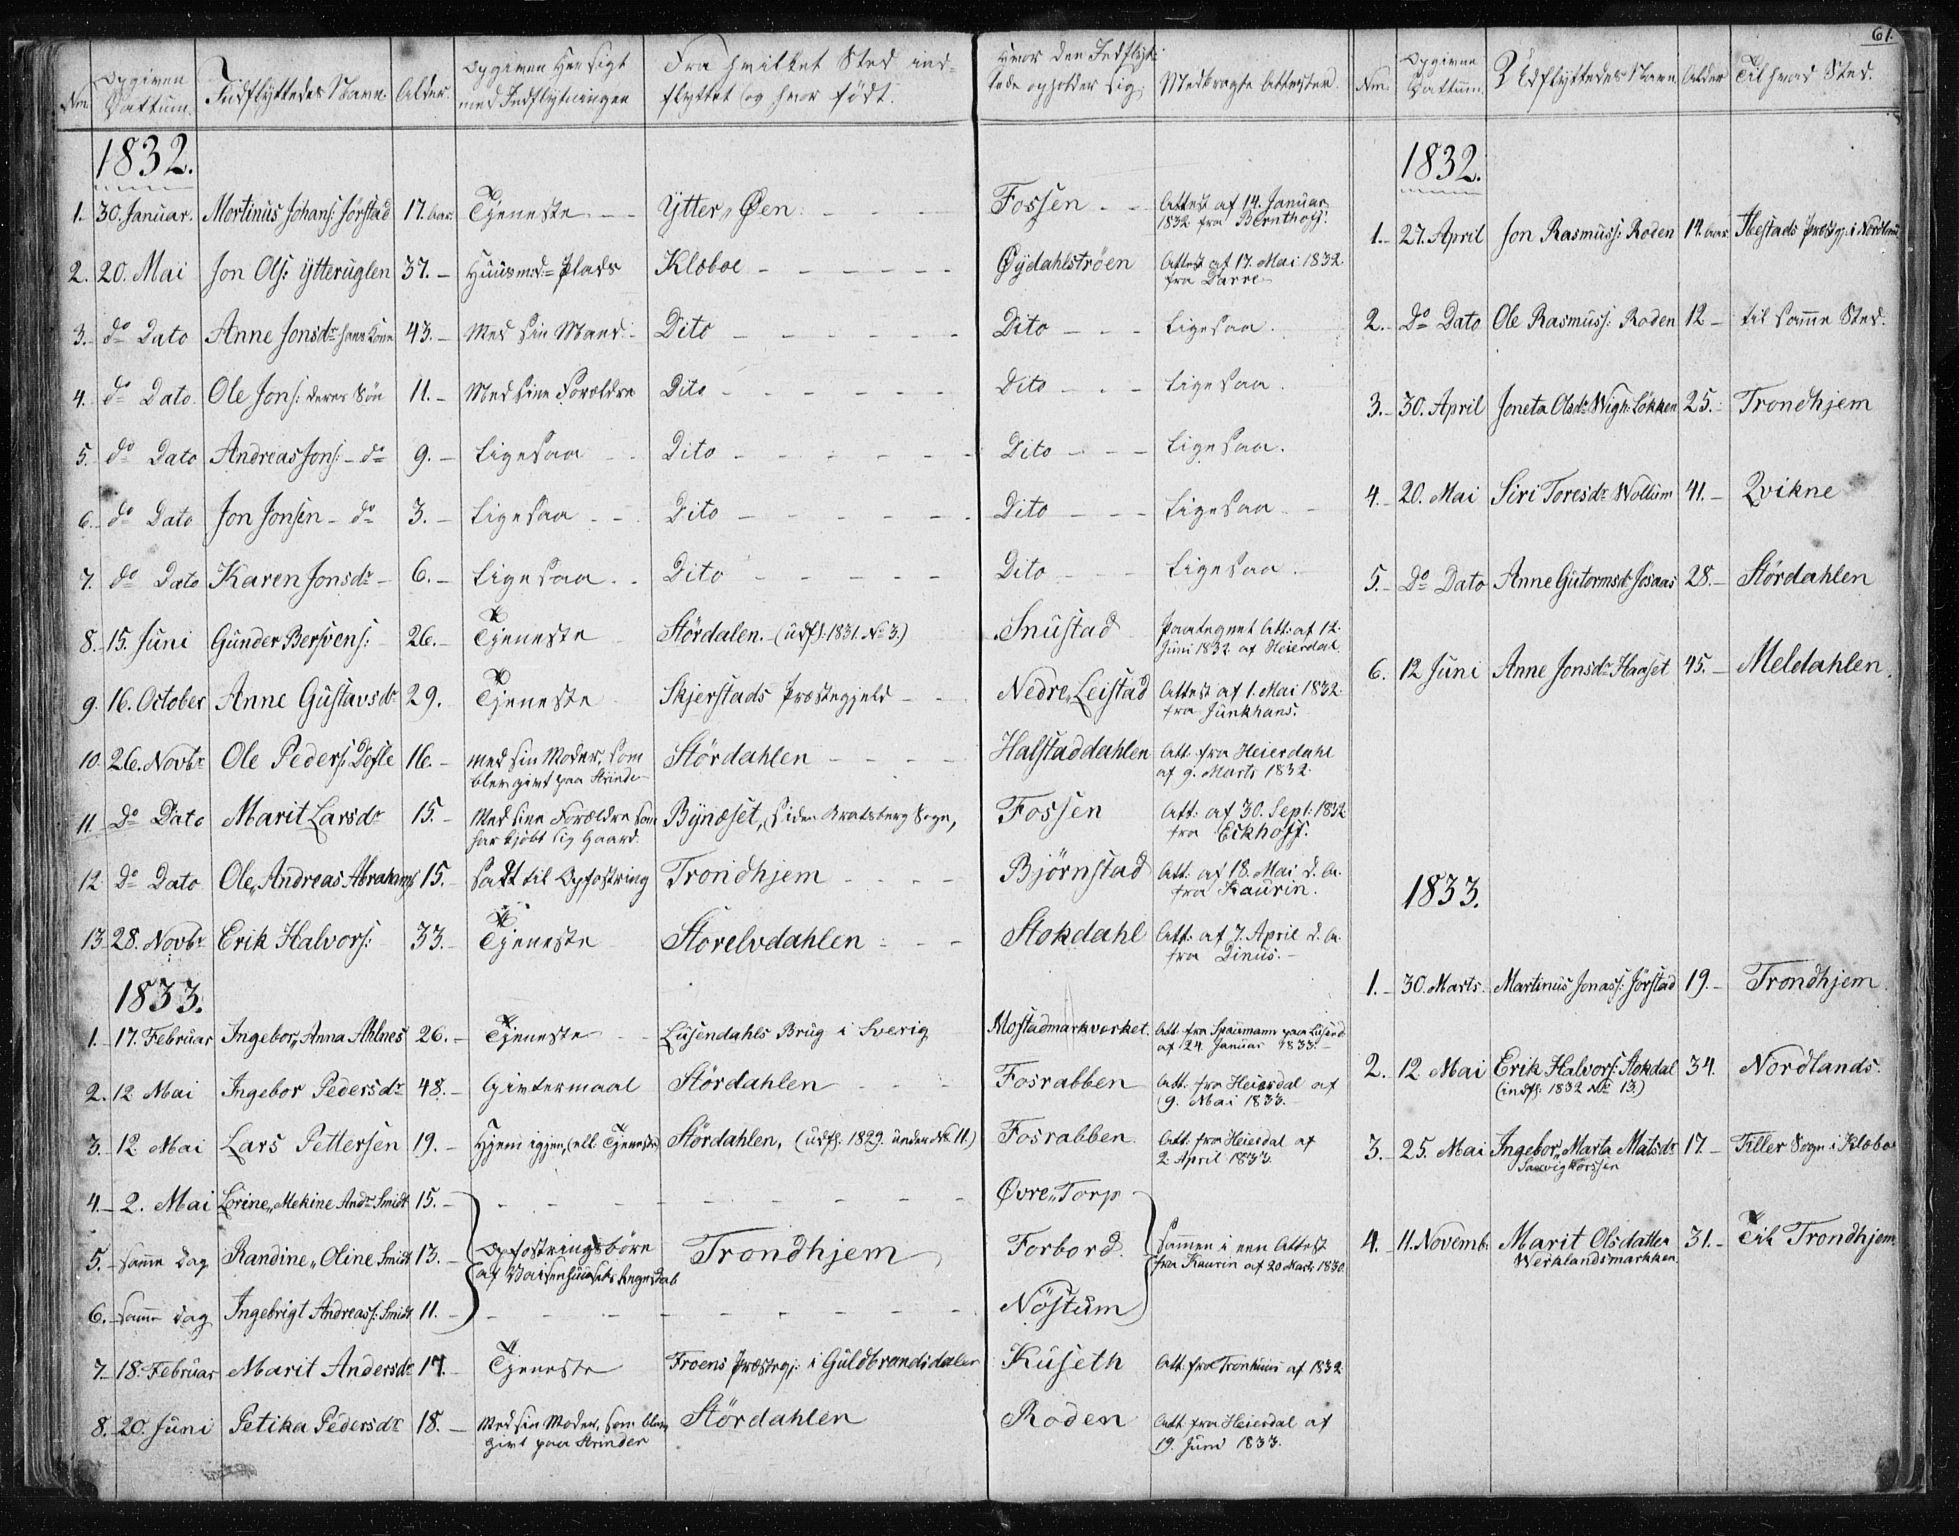 61.
Nm. Opgiven Dattum. Indflyttedes Navn Alder. Opgiven Hensigt med Indflytningen Fra hvilket Sted indflyttet og hvor født. Hvor den Indflyttede opholder sig. Medbragte Attester.
1832.
1. 30. Januar. Mortinus Johans: Jörstad 17. Aar. Tjeneste Ytter„Øen Fossen Attest af 14. Januar 1832 fra Bernthoff.
2. 20. Mai Jon Ols: Ytteruglen 37. Huusmd= Plads Klæboe Øydahlströen Attest af 17. Mai 1832. fra Darre
3. do Dato Anne Jonsdr hans Kone 43. Med sin Mand Dito Dito Ligesaa.
4. do Dato Ole Jons: deres Søn 11. Med sine Forældre Dito Dito Ligesaa.
5. do Dato Andreas Jons: do 9. Ligesaa Dito Dito Ligesaa.
6. do Dato Jon Jonsen do 3. Ligesaa Dito Dito Ligesaa
7. do Dato Karen Jonsdr 6. Ligesaa Dito Dito Ligesaa
8. 15. Juni Gunder Bersvens: 26. Tjeneste Stördalen. (udfl. 1831. No 3.) Snustad Paategnet Att: af 12. Juni 1832 af Heierdal.
9. 16. October Anne Gustavsdr 29. Tjeneste Skjerstads Præstegjeld Nedre„Leistad Attest af 1. Mai 1832. fra Junkhans.
10. 26. Novbr Ole Peders: Døsle 16. med sin Moder, som blev givt paa Strinde Stördahlen Halstaddahlen Att. fra Heierdahl af 9. Marts 1832.
11. Do Dato Marit Larsdr 15. Med sine Forældre som har kjøbt sig Gaard. Bynæset, siden Bratsberg Sogn, Fossen Att: af 30. Sept: 1832 fra Eckhoff.
12. Do Dato Ole„Andreas Abrahams 15. Sadt til Opfostring Trondhjem Björnstad Att: af 18. Mai d. A. fra Kaurin.
13. 28. Novbr Erik Halvors: 33. Tjeneste Storelvdahlen Stokdahl Att: af 7. April d. A. fra Dinus.
1833.
1. 17. Februar Ingebor„Anna Ahlnes 26. Tjeneste Lusendahls Brug i Sverig Mostadmarkværket. Att. fra Spaumann paa Lusend: af 24. Januar 1833.
2. 12 Mai Ingebor Pedersdr 48. Givtermaal Stördahlen Fosrabben Att. fra Heierdal af 9. Mai 1833.
3. 12 Mai Lars Pettersen 19. Hjem igjen, (ell. Tjeneste) Stördahlen, (udfl: 1829. under No 11.) Fosrabben Att. fra Heierdal af 2 April 1833.
4. 2. Mai Lorine„Mekine Andr Smidt 15. Øvre„Torp
5. samme dag Randine„Oline Smidt 13. Opfostringsbörn af Vaisenhuusets Trondhjem Forbord. sammen i een Attest fra Kaurin af 20 Marts 1830.
6. samme dag Ingebrigt Andreass: Smidt 11. Nöstum
7. 18. Februar Marit Andersdr 17. Tjeneste Froens Præstegj: i Guldbrandsdalen Kuseth Att. fra Tronhuus af 1832
8. 20. Juni Petika Pedersdr 18. Med sin Moder, som blev givt paa Strinden Stördahlen Roden Att. fra Heierdal af 19. Juni 1833.
Nm. Opgivne Dattum. Udflyttedes Navn Alder Til hvad Sted.
1832.
1. 27. April Jon Rasmuss: Roden 14. Aar Ibestads Præstgj. i Nordland
2. Do Dato Ole Rasmuss: Roden 12 til samme Sted.
3. 30. April Joneta Olsdr Wigh: Løkken 25. Trondhjem
4. 20. Mai Siri Toresdr Wollum 41. Qvikne
5. Do Dato Anne Gutormsdr Josaas 28. Stördahlen
6. 12 Juni Anne Jonsdr Haaset 45. Meldahlen.
1833.
1. 30. Marts. Martinus Jonass: Jörstad 19. Trondhjem.
2. 12 Mai Erik Halvors: Stokdal (indfl: 1832 No 13.) 34. Nordlands.
3. 25. Mai Ingebor„Marta Matsdr Saxvigkorssen 17. Tiller Sogn i Klæbo
4. 11. Novemb. Marit Olsdatter Werklandsmarkken. 31. Til Trondhjem